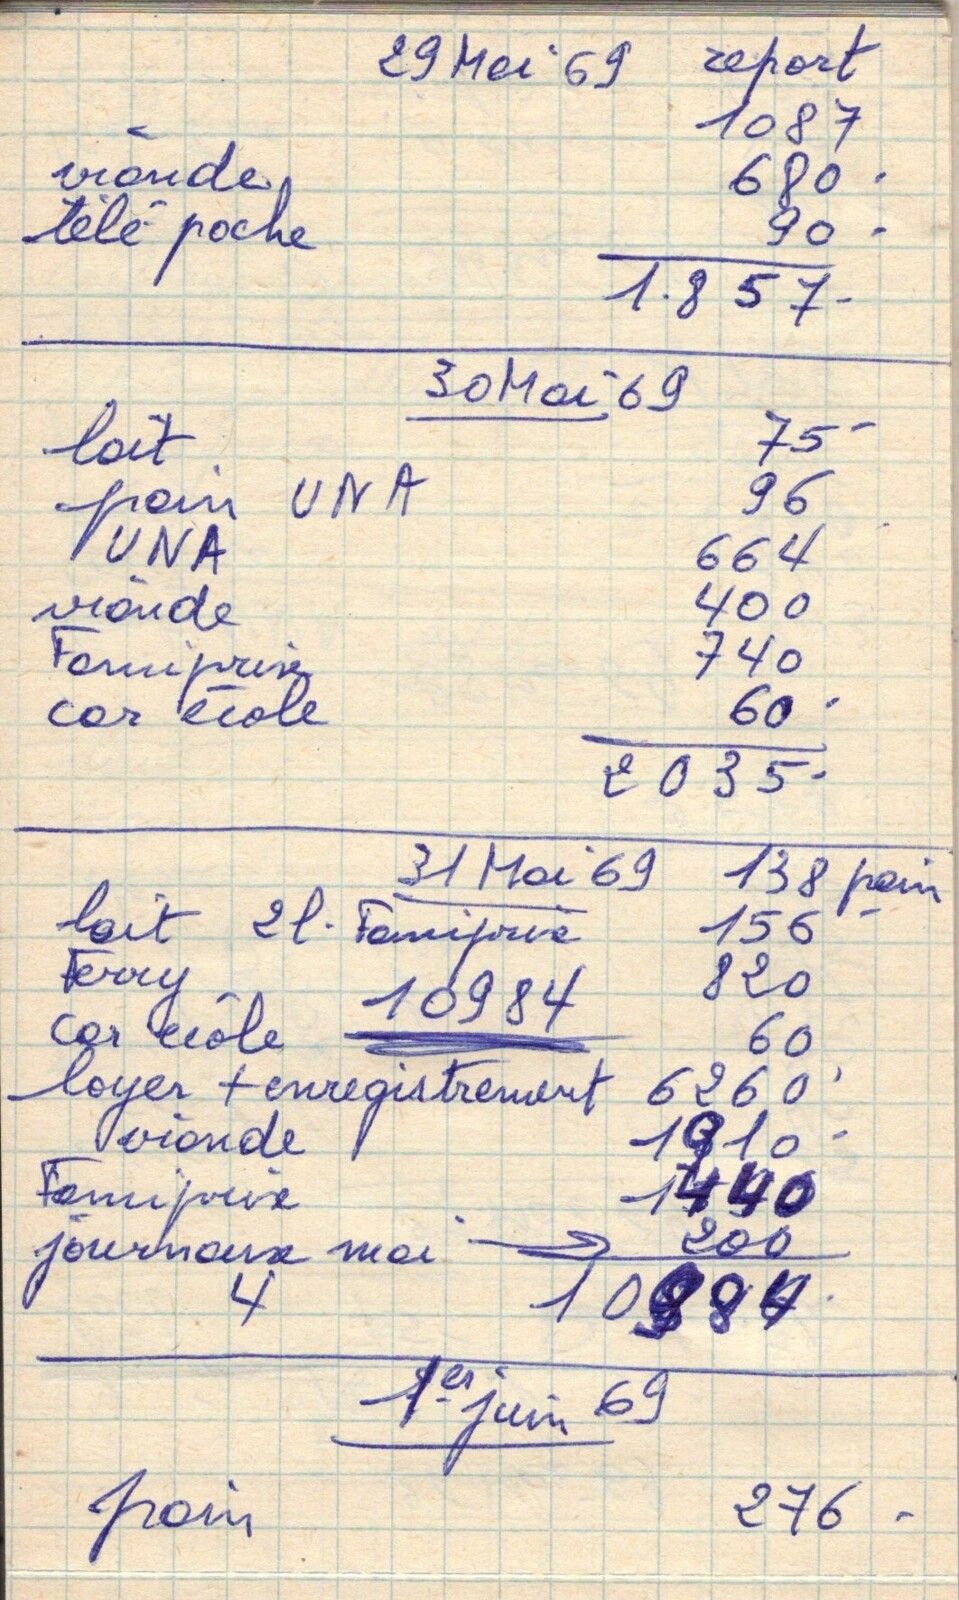 29 Mai 69 report
1087
viande 680.
télé poche 90-
1.857-
30 Mai 69
lait 75-
pain UNA 96
UNA 664
viande 400
Famiprix 740
car école 60.
2035.
31 Mai 69 138 pain
lait 2l. Famiprix 156
Ferry 820
10984
car école 60
loyer + enregistrement 6260
viande 1910-
Famiprix 1440
journaux mai → 200
4 10984.
1er juin 69
pain 276-